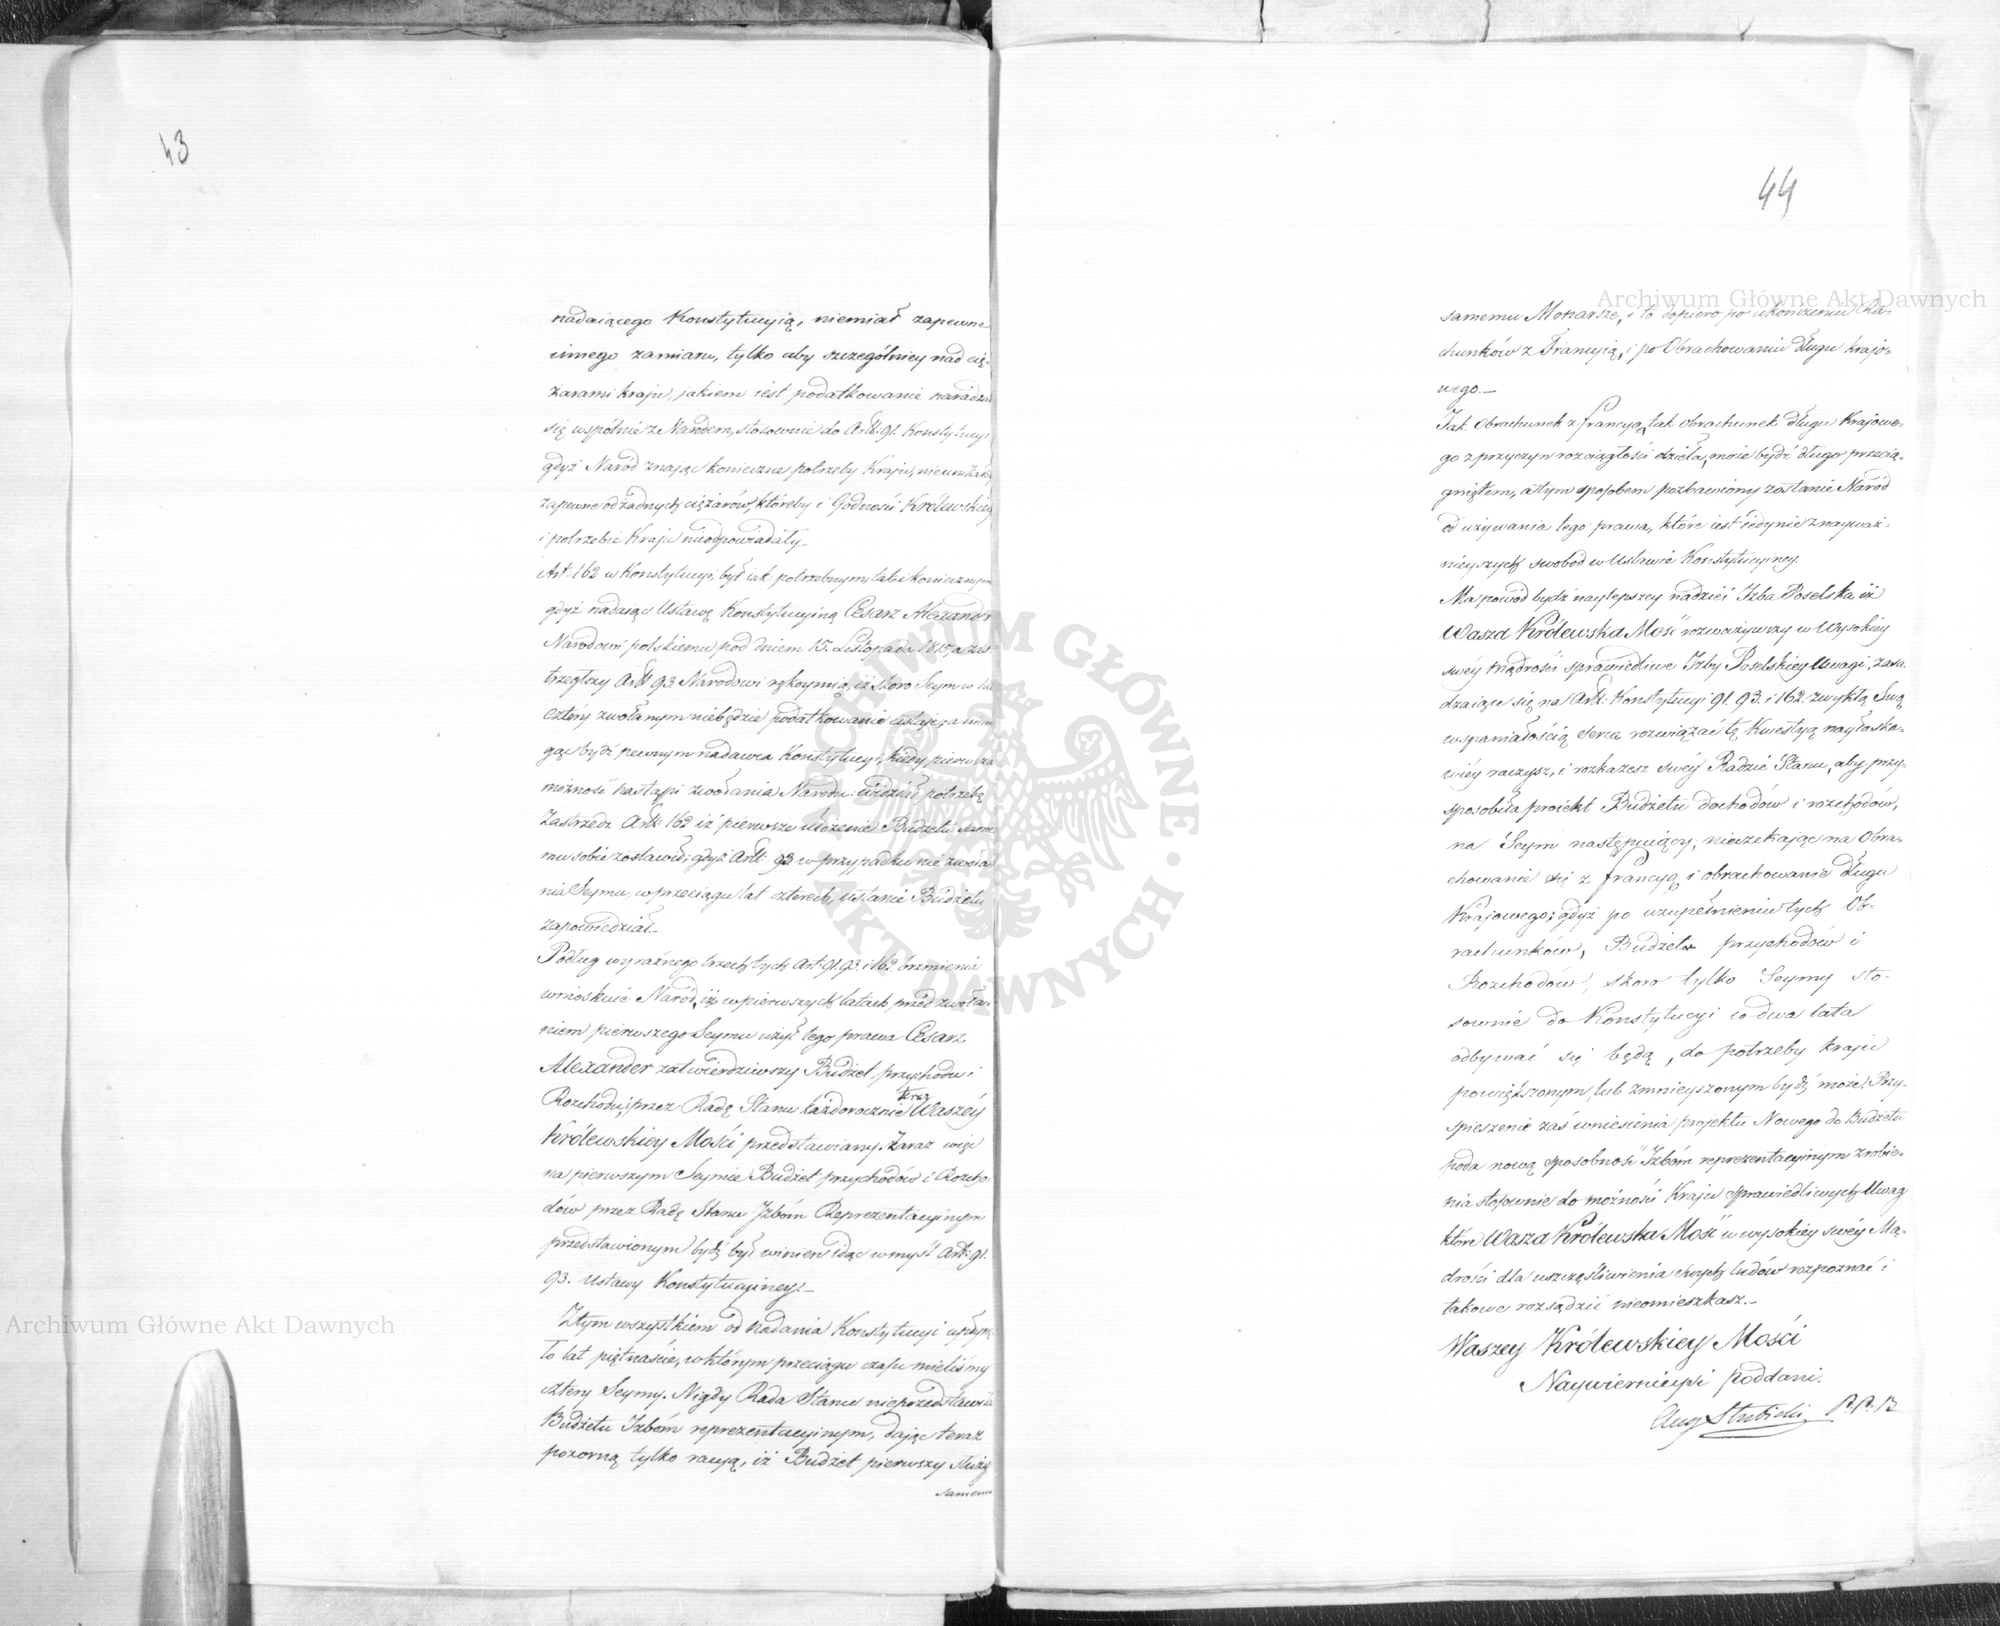 43
nadaiącego Konstytucyią, niemiał zapewne
innego zamiaru, tylko aby szczególniey nad cię-
żarami kraju, jakiem iest podatkowanie naradzał
się wspólnie z Narodem, stosownie do Art: 91. Konstytucyi
gdyż Naród znając konieczne potrzeby Kraju, nieusu
zapewne od żadnych ciężarów, któreby i Godności Królewskiéy
i potrzebie Kraju nieodpowiadały._
Art: 162 w Konstytucyi, był iak potrzebnym, tak i koniecznym
gdyż nadaiąc Ustawę Konstytucyiną Cesarz Alexander
Narodowi polskiemu pod dniem 15. Listopada 1815, a zas-
trzegłszy Art 93 Narodowi rękoymią, iż skoro Seym w lat
cztéry zwołanym niebędzie podatkowanie ustaje, a niem
gąc bydź pewnym nadawca Konstytucyi, kiedy pierwsza
możność nastąpi zwołania Narodu widział potrzebę
Zastrzedz Art: 162 iż pierwsze ułożenie Budżetu same
mu sobie zostawił; gdyż Art: 93 w przypadku nie zwoła
nia Seymu, w przeciągu lat czterech, ustanie Budżetu
zapowiedział._
Podług wyraźnego trzech tych Art: 91. 93. i 162. brzmienia
wnioskuie Naród, iż w pierwszych latach przed zwoła-
niem pierwszego Seymu użył tego prawa Cesarz
Alexander zatwierdziwszy Budżet przychodu i
Rozchodu, przez Radę Stanu każdorocznie teraz Waszéy
Królewskiey Mości przedstawiany. Zaraz więc
na pierwszym Seymie Budżet przychodów i Rozcho-
dów przez Radę Stanu Izbóm Reprezentacyinym
przedstawionym bydź był winien idąc w myśl Art: 91.
93. Ustawy Konstytucyiney._
Ztym wszystkiem od nadania Konstytucyi upłynę
ło lat piętnaście, w którym przeciągu czasu mieliśmy
cztery Seymy. Nigdy Rada Stanu nieprzedstawiła
Budżetu Izbóm reprezentacyinym, dając teraz
pozorną tylko racyą, iż Budżet pierwszy służył
samemu
44
samemu Monarsze, i to dopiero po ukończeniu Ra-
chunków z Francyią, i po Obrachowaniu długu krajo-
wego._
Jak Obrachunek z Francyą, tak obrachunek długu Krajowe-
go z przyczyn rozciągłości dzieła, może bydź długo przecią-
gniętem, a tym sposobem pozbawiony zostanie Naród
od używania tego prawa, które iest iedynie z nayważ-
nieyszych swobod w Ustawie Konstytucyiney.
Ma powód bydź naylepszey nadziei Izba Poselska iż
Wasza Królewska Mość rozważywszy w Wysokiey
swéy mądrości sprawiedliwe Izby Poselskiey Uwagi, zasa-
dzaiąc się na Art: Konstytucyi 91. 93. i 162. zwykłą Swą
wspaniałością serca rozwiązać tę Kwestyą nayłaska-
wiéy raczysz, i rozkażesz swéy Radzie Stanu, aby przy-
sposobiła proiekt Budżetu dochodów i rozchodów,
na Seym następuiący, nieczekając na Obra-
chowanie się z Francyą i obrachowanie długu
Krajowego; gdyż po uzupełnieniu tych Ob-
rachunków, Budżet przychodów i
Rozchodów, skoro tylko Seymy sto-
sownie do Konstytucyi co dwa lata
odbywać się będą, do potrzeby kraju
powiększonym, lub zmnieyszonym bydź może. Przy-
spieszenie zaś wniesienia projektu Nowego do Budżetu
poda nową sposobność Izbóm reprezentacyinym zrobie-
nia stosownie do możności Kraju sprawiedliwych Uwag
które Wasza Królewska Mość w wysokiey swéy Mą-
drości dla uszczęśliwienia swych ludów rozpoznać i
takowe rozsądzić nieomieszkasz._
Waszey Królewskiey Mości
Naywiernieysi poddani.
Aug Słubicki P. P. B.
Archiwum Główne Akt Dawnych
Archiwum Główne Akt Dawnych
ARCHIWUM GŁÓWNE AKT DAWNYCH